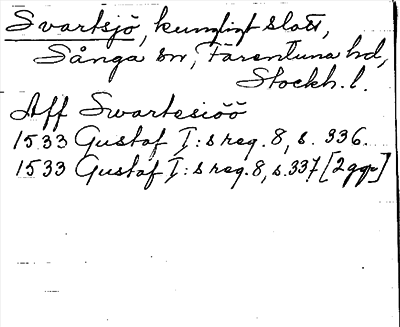 Svartsjö, kungligt slott,
Sånga sn, Färentuna hd,
Stockh. l.
Aff Swartesiöö
1533 Gustaf I:s reg. 8, s. 336.
1533 Gustaf I:s reg. 8, s. 337 [2 ggr]